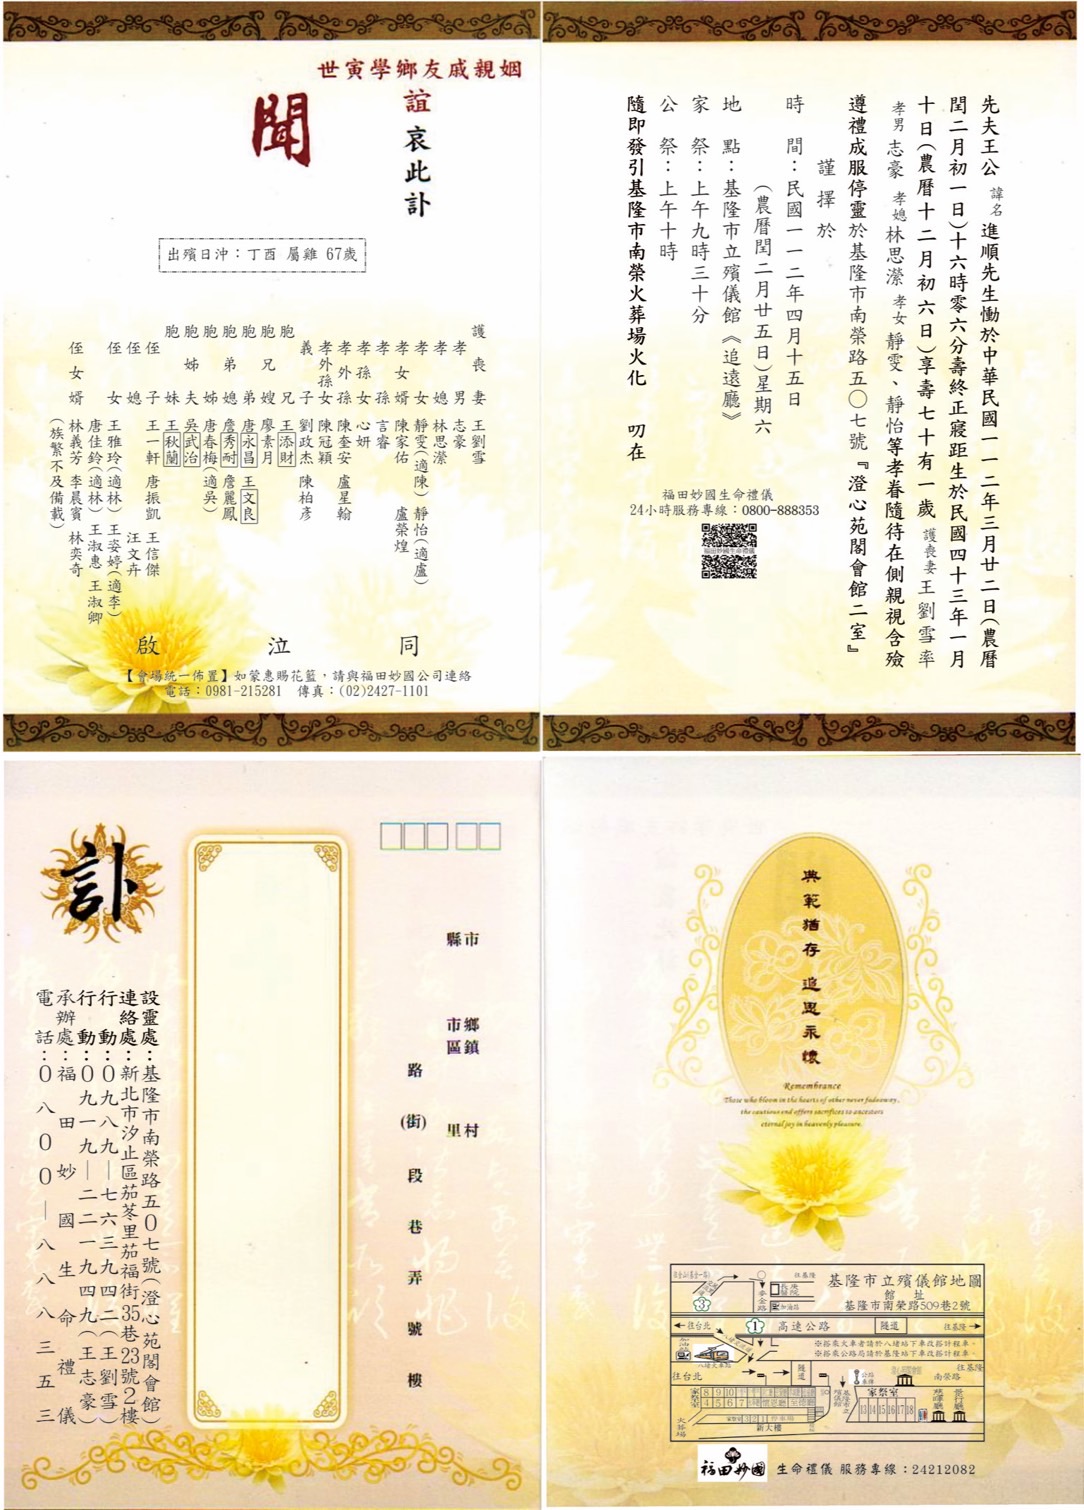 先夫王公 諱名 進順先生慟於中華民國一一二年三月廿二日(農曆
閏二月初一日)十六時零六分壽終正寢距生於民國四十三年一月
十日(農曆十二月初六日)享壽七十有一歲 護喪妻 王劉雪率
孝男 志豪 孝媳 林思瀠 孝女 靜雯、靜怡等孝眷隨待在側親視含殮
遵禮成服停靈於基隆市南榮路五〇七號『澄心苑閣會館二室』
謹擇於
時 間：民國一一二年四月十五日
(農曆閏二月廿五日)星期六
地 點：基隆市立殯儀館《追遠廳》
家 祭：上午九時三十分
公 祭：上午十時
隨即發引基隆市南榮火葬場火化 叨在
福田妙國生命禮儀
24小時服務專線：0800-888353
福田妙國生命禮儀
世寅學鄉友戚親姻
誼哀此訃
聞
出殯日沖：丁酉 屬雞 67歲
護喪妻 王劉雪
孝男 志豪
孝媳 林思瀠
孝女 靜雯(適陳) 靜怡(適盧)
孝女婿 陳家佑 盧榮煌
孝孫 言睿
孝孫女 心妍
孝外孫 陳奎安 盧星翰
孝外孫女 陳冠穎
義子 劉政杰 陳柏彥
胞兄 王添財
胞兄嫂 廖素月
胞弟 唐永昌 王文良
胞弟媳 詹秀耐 詹麗鳳
胞姊 唐春梅(適吳)
胞姊夫 吳武治
胞妹 王秋蘭
侄子 王一軒 唐振凱 王信傑
侄媳 汪文卉
侄女 王雅玲(適林) 王姿婷(適李)
唐佳鈴(適林) 王淑惠 王淑卿
侄女婿 林義芳 李晨賓 林奕奇
(族繁不及備載)
同 泣 啟
【會場統一佈置】如蒙惠賜花籃，請與福田妙國公司連絡
電話：0981-215281 傳真：(02)2427-1101
訃
縣市
鄉鎮市區
村里
路(街) 段 巷 弄 號 樓
設靈處：基隆市南榮路五0七號(澄心苑閣會館)
連絡處：新北市汐止區茄苳里茄福街35巷23號2樓
行 動：0九八九—七六三九四二(王劉雪)
行 動：0九一九—二二一九四九(王志豪)
承辦處：福田妙國生命禮儀
電 話：0八00—八八八三五三
典範猶存 追思永懷
Remembrance
Those who bloom in the hearts of other never fadeaway,
the cautious end offers sacrifices to ancestors
eternal joy in heavenly pleasure.
基隆市立殯儀館地圖
館 址
基隆市南榮路509巷2號
往基隆
麥金路
長庚醫院
加油站
3
←往台北
1
高速公路
隧道
往基隆→
※搭乘火車者請於八堵站下車改搭計程車。
※搭乘公路局請於基隆站下車改搭計程車。
加油站
八堵火車站
往台北
隧道
往基隆
南榮路
家祭室
8 9 10
4 5 6 7
3 2 1
新大樓
火葬場
家祭室
13 14 15 16 17 18
景行廳
福田妙國 生命禮儀 服務專線：24212082